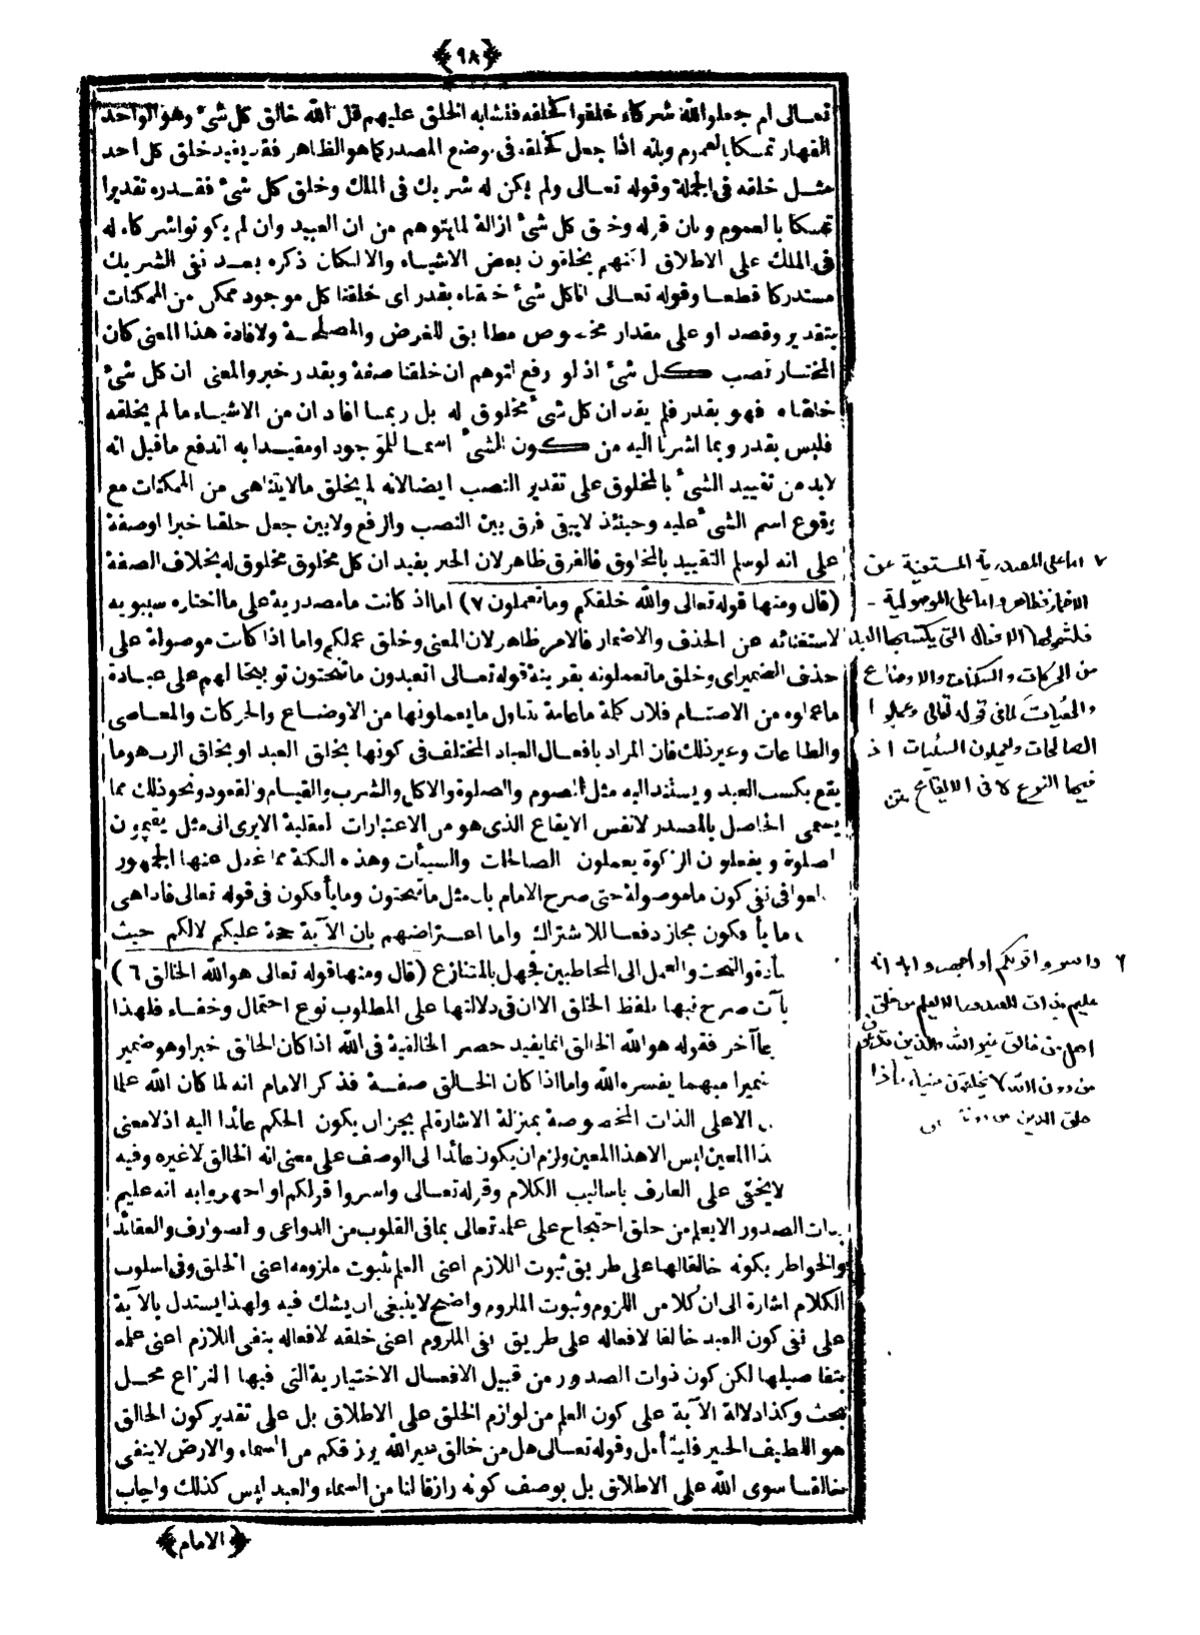 ﴿٩٨﴾
تعالى ام جعلوا لله شركاء خلقوا كخلقه فتشابه الخلق عليهم قل الله خالق كل شئ وهو الواحد
القهار تمسكا بالعموم وبانه اذا جعل كخلقه فى موضع المصدر كما هو الظاهر فقد يفيد خلق كل احد
مثل خلقه فى الجملة وقوله تعالى ولم يكن له شريك فى الملك وخلق كل شئ فقدره تقديرا
تمسكا بالعموم وبان قوله وخلق كل شئ ازالة لما يتوهم من ان العبيد وان لم يكونوا شركاء له
فى الملك على الاطلاق لكنهم يخلقون بعض الاشياء والا لكان ذكره بعد نفى الشريك
مستدركا قطعا وقوله تعالى انا كل شئ خلقناه بقدر اى خلقنا كل موجود ممكن من الممكنات
بتقدير وقصد او على مقدار مخصوص مطابق للغرض والمصلحة ولافادة هذا المعنى كان
المختار نصب كل شئ اذ لو رفع لتوهم ان خلقنا صفة وبقدر خبر والمعنى ان كل شئ
خلقناه فهو بقدر فلم يفد ان كل شئ مخلوق له بل ربما افاد ان من الاشياء ما لم يخلقه
فليس بقدر وبما اشرنا اليه من كون الشئ اسما للموجود او مقيدا به اندفع ما قيل انه
لابد من تقييد الشئ بالمخلوق على تقدير النصب ايضا لانه لم يخلق ما لا يتناهى من الممكنات مع
وقوع اسم الشئ عليه وحينئذ لا يبقى فرق بين النصب والرفع ولا بين جعل خلقنا خبرا او صفة
على انه لو سلم التقييد بالمخلوق فالفرق ظاهر لان الخبر يفيد ان كل مخلوق مخلوق له بخلاف الصفة
(قال ومنها قوله تعالى والله خلقكم وما تعملون ٧) اما اذ كانت ما مصدرية على ما اختاره سيبويه
لاستغنائه عن الحذف والاضمار فالامر ظاهر لان المعنى وخلق عملكم واما اذا كانت موصولة على
حذف الضمير اى وخلق ما تعملونه بقرينة قوله تعالى اتعبدون ما تنحتون توبيخا لهم على عبادة
ما عملوه من الاصنام فلان كلمة ما عامة يتناول ما يعملونها من الاوضاع والحركات والمعاصى
والطاعات وغير ذلك فان المراد بافعال العباد المختلف فى كونها بخلق العبد او بخلق الرب هو ما
يقع بكسب العبد ويستند اليه مثل الصوم والصلوة والاكل والشرب والقيام والقعود ونحو ذلك مما
يسمى الحاصل بالمصدر لا نفس الايقاع الذى هو من الاعتبارات العقلية الا يرى الى مثل يقيمون
الصلوة ويفعلون الزكوة يعملون الصالحات والسيئات وهذه النكتة مما غفل عنها الجمهور
فبالغوا فى نفى كون ما موصولة حتى صرح الامام بان مثل ما تنحتون وما يأفكون فى قوله تعالى فاذا هى
ما يأفكون مجاز دفعا للاشتراك واما اعتراضهم بان الآية حجة عليكم لا لكم حيث
العبادة والنحت والعمل الى المخاطبين فجهل بالمتنازع (قال ومنها قوله تعالى هو الله الخالق ٦)
آيات صرح فيها بلفظ الخلق الا ان فى دلالتها على المطلوب نوع احتمال وخفاء فلهذا
آخر فقوله هو الله الخالق انما يفيد حصر الخالقية فى الله اذا كان الخالق خبرا وهو ضمير
ضميرا مبهما يفسره الله واما اذا كان الخالق صفة فذكر الامام انه لما كان الله علما
الا على الذات المخصوصة بمنزلة الاشارة لم يجز ان يكون الحكم عائدا اليه اذ لا معنى
هذا المعين ليس الا هذا المعين ولزم ان يكون عائدا الى الوصف على معنى انه الخالق لا غيره وفيه
لا يخفى على العارف باساليب الكلام وقوله تعالى واسروا قولكم او اجهروا به انه عليم
بذات الصدور الا يعلم من خلق احتجاج على علمه تعالى بما فى القلوب من الدواعى والصوارف والعقائد
والخواطر بكونه خالقا لها على طريق ثبوت اللازم اعنى العلم بثبوت ملزومه اعنى الخلق وفى اسلوب
الكلام اشارة الى ان كلا من اللزوم وثبوت الملزوم واضح لا ينبغى ان يشك فيه ولهذا يستدل بالآية
على نفى كون العبد خالقا لافعاله على طريق نفى الملزوم اعنى خلقه لافعاله بنفى اللازم اعنى علمه
بتفاصيلها لكن كون ذوات الصدور من قبيل الافعال الاختيارية التى فيها النزاع محل
بحث وكذا دلالة الآية على كون العلم من لوازم الخلق على الاطلاق بل على تقدير كون الخالق
هو اللطيف الخبير فليتأمل وقوله تعالى هل من خالق غير الله يرزقكم من السماء والارض لا ينفى
خالقا سوى الله على الاطلاق بل بوصف كونه رازقا لنا من السماء والعبد ليس كذلك واجاب
﴿الامام﴾
٧ اما على المصدرية المستغنية عن
الاضمار فظاهر واما على الموصولية
فلشمولها الافعال التى يكتسبها العبد
من الحركات والسكنات والاوضاع
والهيآت كما فى قوله تعالى وعملوا
الصالحات ويعملون السيئات اذ
فيها النوع لا فى الايقاع متن
٦ واسروا قولكم او اجهروا به انه
عليم بذات الصدور الا يعلم من خلق
هل من خالق غير الله والذين تدعون
من دون الله لا يخلقون شيئا ماذا
خلق الذين من دونه